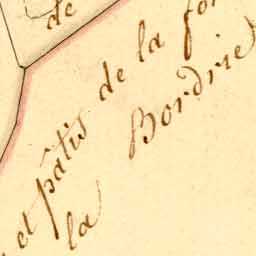 de
et pâtis de la
la Bordrie